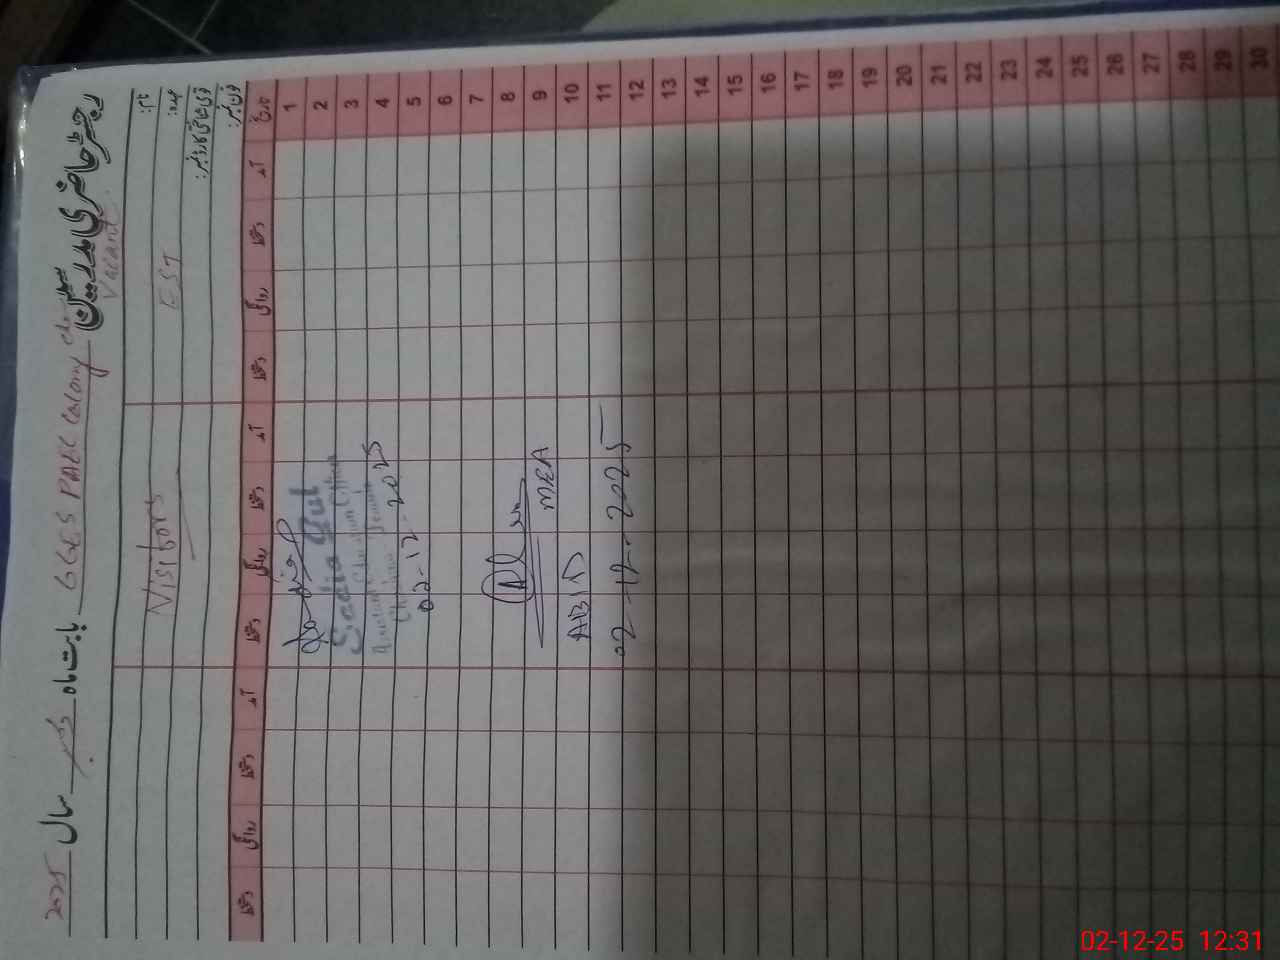 رجسٹر حاضری مدرسین GGES PAEC Colony بابت ماہ دسمبر سال 2025
نام: Vacant Visitors
عہدہ: EST
قومی شناختی کارڈ نمبر:
فون نمبر:
تاریخ آمد دستخط روانگی دستخط آمد دستخط روانگی دستخط آمد دستخط روانگی دستخط
1
2 Sadia Gul
3 Assistant Education Officer
4
02-12-2025
5
6
7
8
9 MEA
10 ABID
11
02-12-2025
12
13
14
15
16
17
18
19
20
21
22
23
24
25
26
27
28
29
30
02-12-25 12:31